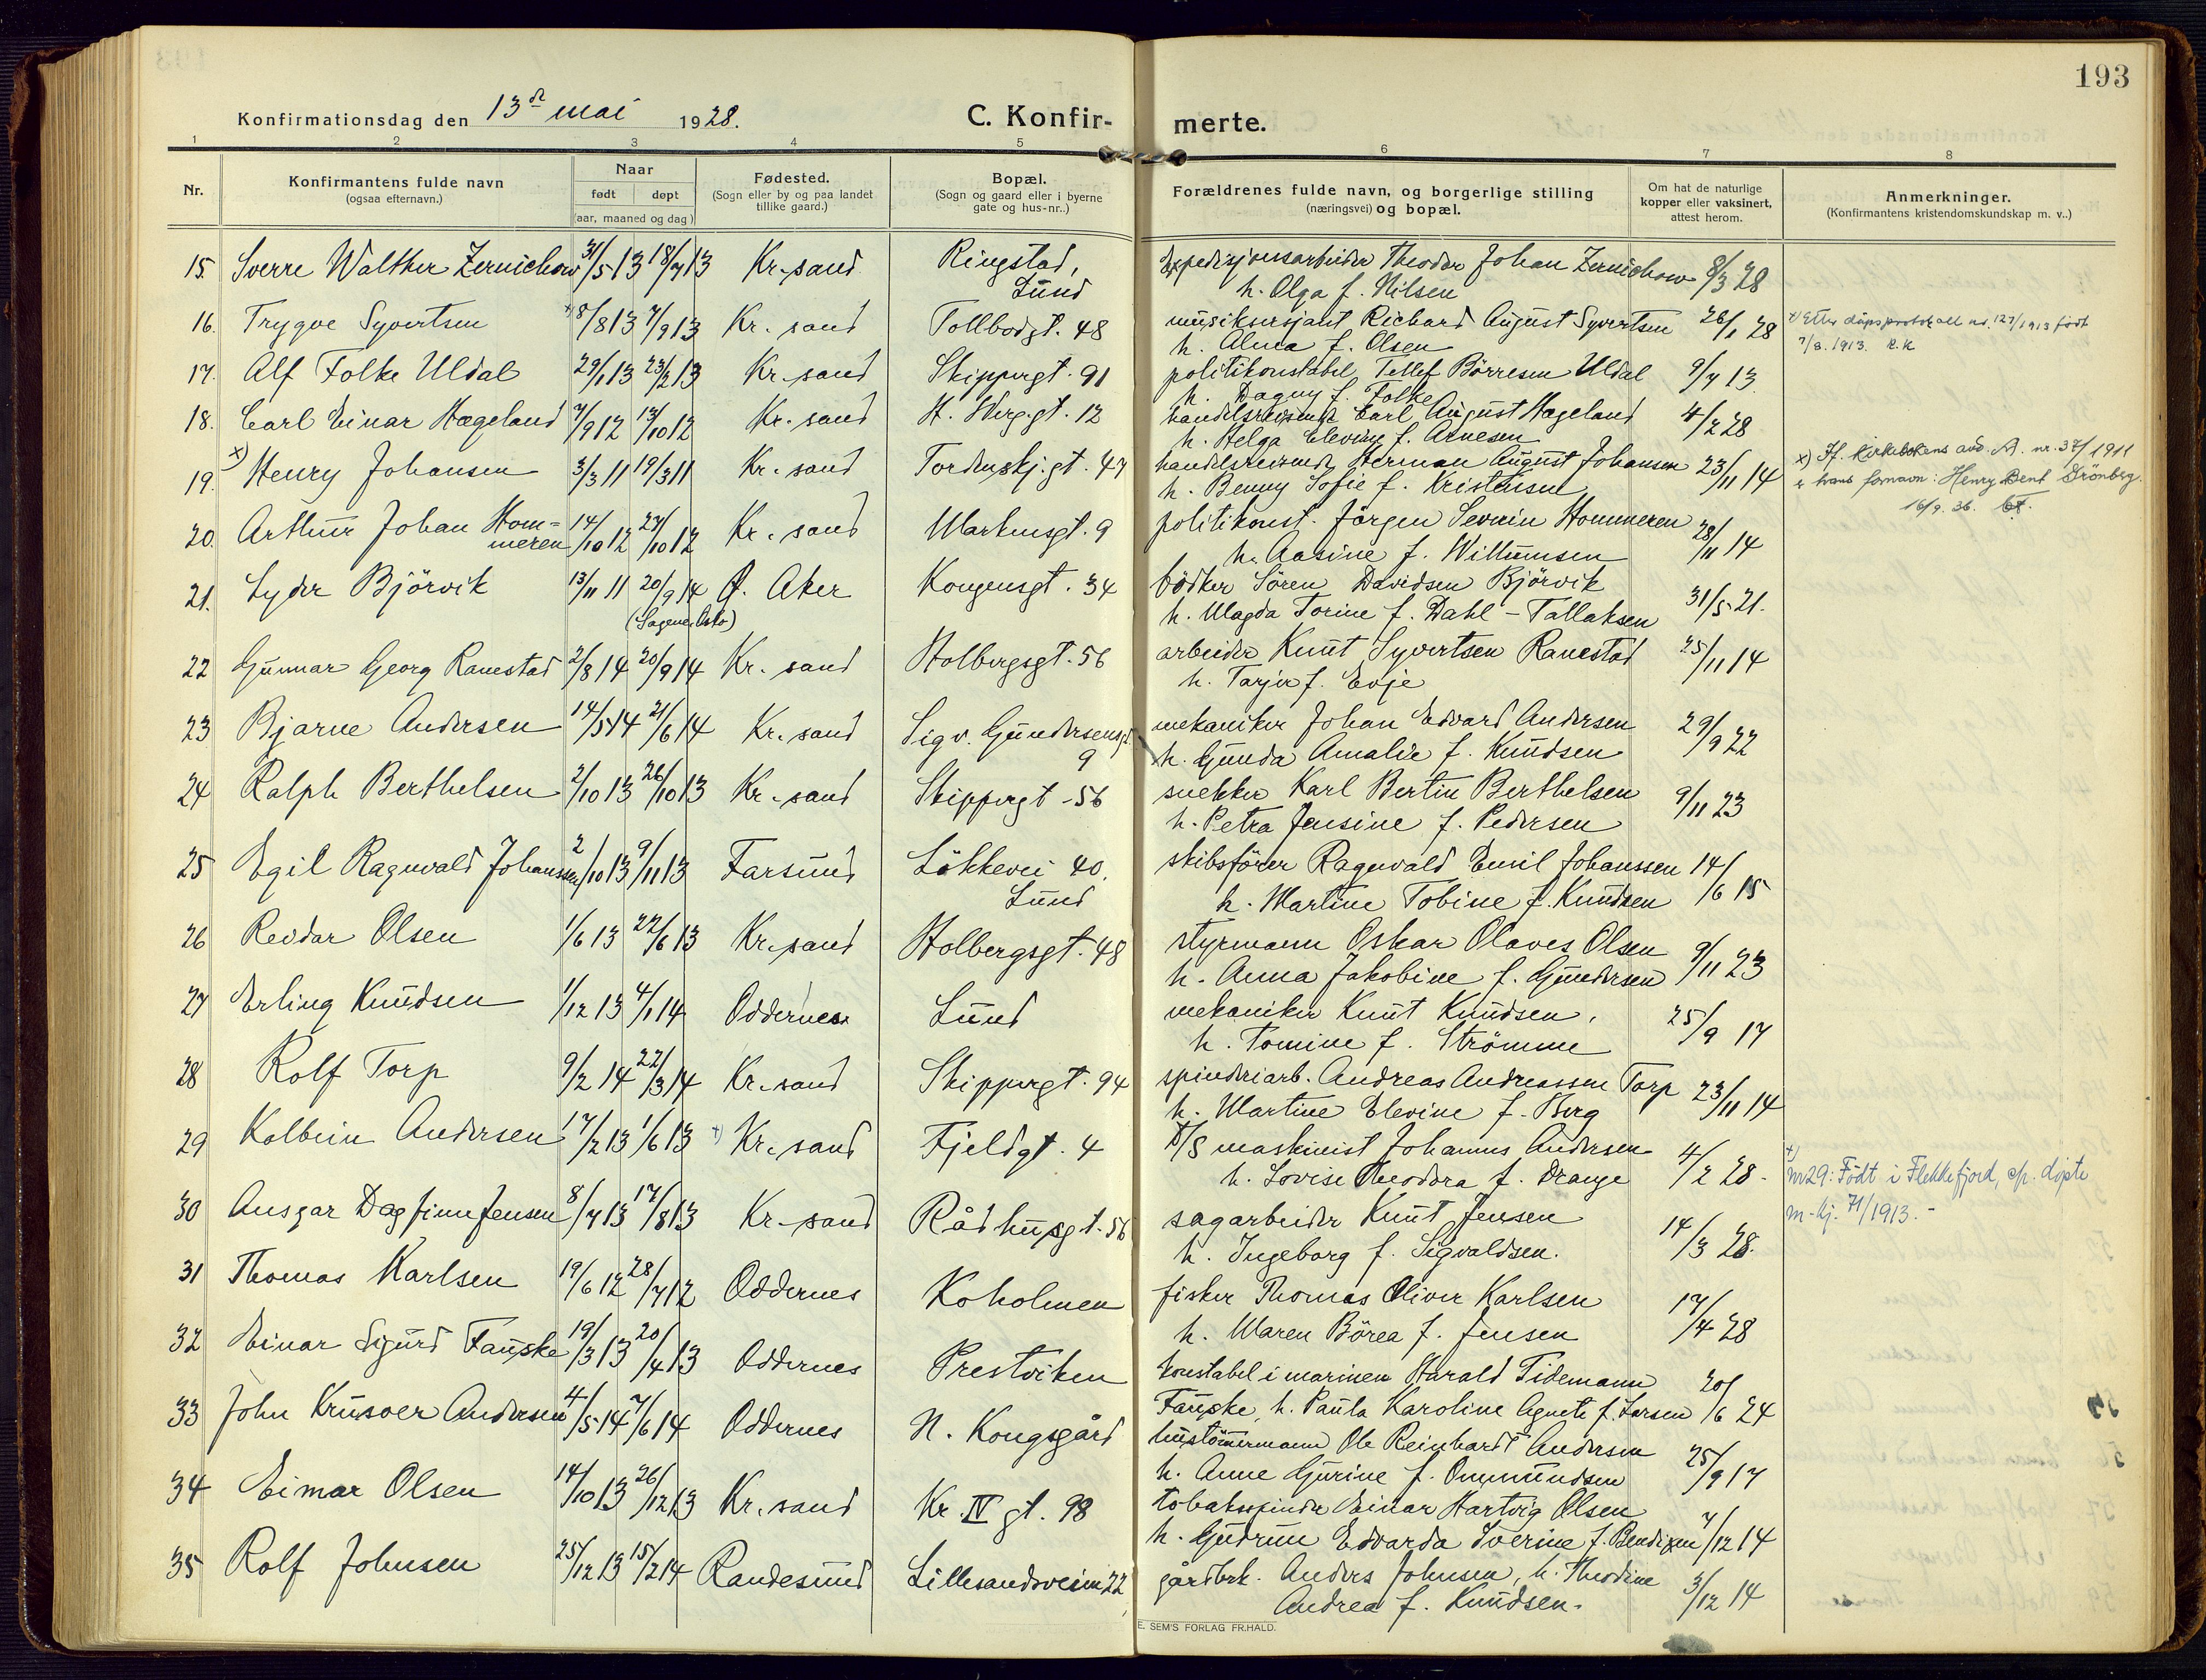 193
Konfirmationsdag den 13de mai 1928. C. Konfir- merte.
1 2 3 4 5 6 7 8
Nr.
Konfirmantens fulde navn
(ogsaa efternavn.)
Naar
født døpt
(aar, maaned og dag)
Fødested.
(Sogn eller by og paa landet
tillike gaard.)
Bopæl.
(Sogn og gaard eller i byerne
gate og hus-nr..)
Forældrenes fulde navn, og borgerlige stilling
(næringsvei) og bopæl.
Om hat de naturlige
kopper eller vaksinert,
attest herom.
Anmerkninger.
(Konfirmantens kristendomskundskap m. v..)
15. Sverre Walther Zernichow 31/5 13 18/7 13 Kr.sand Ringstad, Expedisjonsarbeider Theodor Johan Zernichow 8/3 28
Lund h. Olga f. Nilsen
16. Trygve Syvertsen x) 8/8 13 7/9 13 Kr. sand Tollbodgt. 48 musikersjant Richard August Syvertsen 26/1 28 x) Etter dåpsprotokoll nr. 127/1913 født
h. Alma f. Olsen 7/8. 1913. R.K
17. Alf Folke Uldal 29/1 13 23/2 13 Kr.sand Skippergt. 91 politikonstabel Tellef Börresen Uldal 9/7 13
h. Dagny f. Folke
18. Carl Einar Hægeland 7/9 12 13/10 12 Kr. sand H. Werg.gt. 12 handelsreisende Carl August Hægeland 4/2 28
h. Helga Elevine f. Arnesen
19. x) Henry Johansen 3/3 11 19/3 11 Kr. sand Tordenskj.gt. 47 handelsreisende Herman August Johansen 23/11 14 x) If. kirkebokens avd. A. nr. 37/1911
h. Benny Sofie f. Kristensen er hans fornavn: Henry Bent Drönberg.
16/9. 36.
20. Arthur Johan Hom= 14/10 12 27/10 12 Kr. sand Markensgt. 9 politikonst. Jörgen Severin Hommeren 28/11 14
meren h. Aasine f. Willumsen
21. Lyder Björvik 13/11 11 20/9 14 Ø. Aker Kongensgt. 34 bödker Sören Davidsen Björvik 31/5 21.
(Sagene, Oslo) h. Magda Torine f. Dahl - Tallaksen
22 Gunnar Georg Ranestad 2/8 14 20/9 14 Kr. sand Holbergsgt. 56 arbeider Knut Syvertsen Ranestad 25/11 14
h. Tarjer f. Evje
23 Bjarne Andersen 14/5 14 21/6 14 Kr. sand Sigv. Gundersensgt. mekaniker Johan Edvard Andersen 29/9 22
9 h. Gunda Amalie f. Knudsen
24 Ralph Berthelsen 2/10 13 26/10 13 Kr. sand Skippergt - 56 snekker Karl Bertin Berthelsen 9/11 23
h. Petra Jensine f. Pedersen
25 Egil Ragnvald Johanssen 2/10 13 9/11 13 Farsund Lökkevei 40. skibsförer Ragnvald Emil Johanssen 14/6 15
Lund h. Martine Tobine f. Knudsen
26 Reidar Olsen 1/6 13 22/6 13 Kr.sand Holbergsgt. 48 styrmann Oskar Olaves Olsen 9/11 23
h. Anna Jakobine f. Gundersen
27 Erling Knudsen 1/12 13 4/1 14 Oddernes Lund mekaniker Knut Knudsen, 25/9 17
h. Tomine f. Strömme
28 Rolf Torp 9/2 14 22/3 14 Kr. sand Skippergt. 94 spinderiarb. Andreas Andreassen Torp 23/11 14
h. Martine Elevine f. Berg
29 Kolbein Andersen 17/2 13 1/6 13 x) Kr. sand Fjeldgt. 4 D/S maskinist Johannes Andersen 4/2 28. x)
h. Lovise Theodora f. Drange nr 29: Födt i Flekkefjord, cfr. döpte
30 Ansgar Dagfinn Jensen 8/7 13 17/8 13 Kr. sand Rådhusgt. 56 sagarbeider Knut Jensen 14/3 28. m. kj. 71/1913. -
h. Ingeborg f. Sigvaldsen.
31 Thomas Karlsen 19/6 12 28/7 12 Oddernes Koholmen fisker Thomas Oliver Karlsen 17/4 28
h. Maren Börea f. Jensen
32 Einar Sigurd Fauske 19/3 13 20/4 13 Oddernes Prestviken konstabel i marinen Harald Tidemann 20/6 24
Fauske, h. Paula Karoline Agnete f. Larsen
33 John Krusoer Andersen 4/5 14 7/6 14 Oddernes N. Kongsgård hustömmermann Ole Reinhardt Andersen 25/9 17
h. Anne Gurine f. Ommundsen
34 Eimar Olsen 14/10 13 26/12 13 Kr. sand Kr. IV gt. 98 tobaksspinder Einar Hartvig Olsen 7/12 14
h. Gudrun Edvarda Sverine f. Bendixen
35 Rolf Johnsen 25/12 13 15/2 14 Randesund Lillesandsveien 22 gårdbrk. Anders Johnsen, h. Theodine 3/12 14
Andrea f. Knudsen.
E. SEM'S FORLAG FR.HALD.